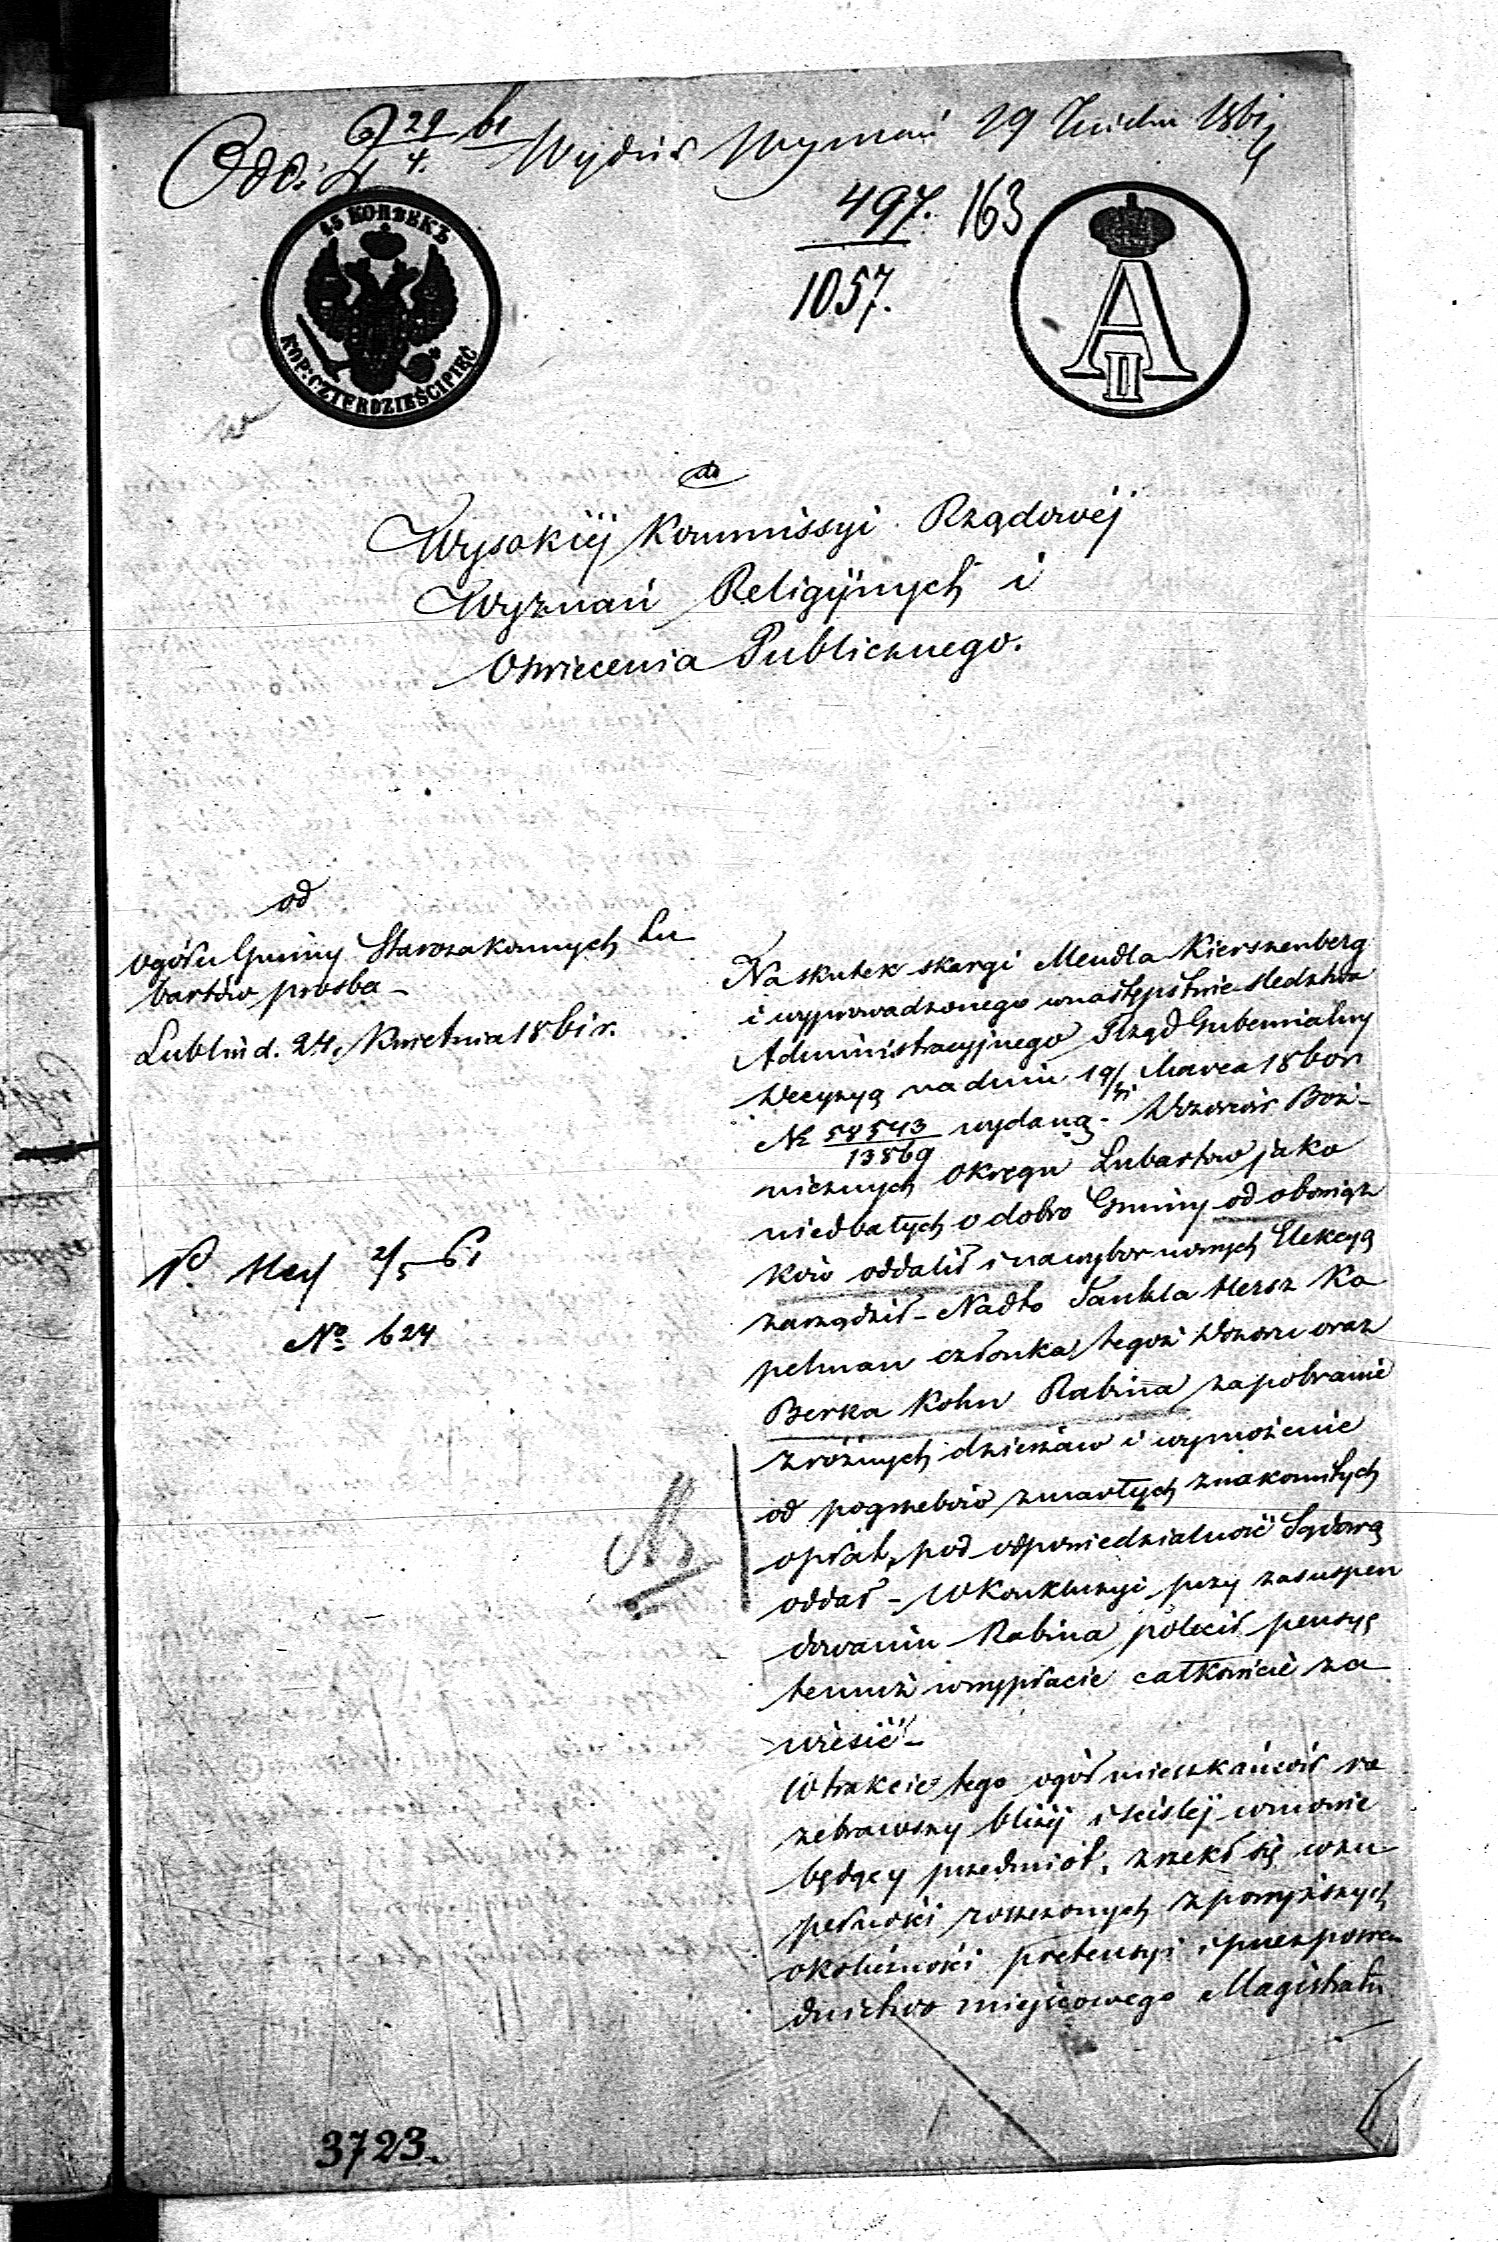 Odd: 29/4 61 Wydział Wyznań 29 Kwietn 1861
497. 163
1057.
45 КОПѢЕКЪ
KOP: CZTERDZIEŚCI PIĘĆ
A II
do
Wysokiéj Kommissyi Rządowéj
Wyznań Religijnych i
Oświecenia Publicznego.
od
ogółu Gminy Starozakonnych Lu
bartów prośba –
Lublin d. 24. Kwietnia 1861 r.
2/5 61
No 624
Na skutek skargi Mendla Kierszenberg
i wyprowadzonego wnastępstwie śledztwa
Administracyjnego Rząd Gubernialny
Decyzyą na dniu 19/31 Marca 1860 r.
No 58543/13869 wydaną – Dozorców Boż-
nicznych Okręgu Lubartow jako
niedbałych o dobro Gminy od obowiąz
ków oddalił i na wybor nowych Elekcyą
zarządził – Nadto Jankla Hersz Ka
pelman członka tegoż Dozoru oraz
Berka Kohn Rabina za pobranie
z różnych dzierżaw i wymożenie
od pogrzebów zmarłych znakomitych
opłat, pod odpowiedzialność Sądową
oddał – W Konkluzyi przy zasuspen
dowaniu Rabina polecił pensyę
temuż w wypłacie całkowicie za
wiesić –
W trakcie tego ogół mieszkańców ro
zebrawszy bliżéj i ściśléj w mowie
będący przedmiot, zrzekł się wzu
pełności roszczonych z powyższych
okoliczności pretensyi i przez pośre-
dnictwo miejscowego Magistratu
NB
3723.